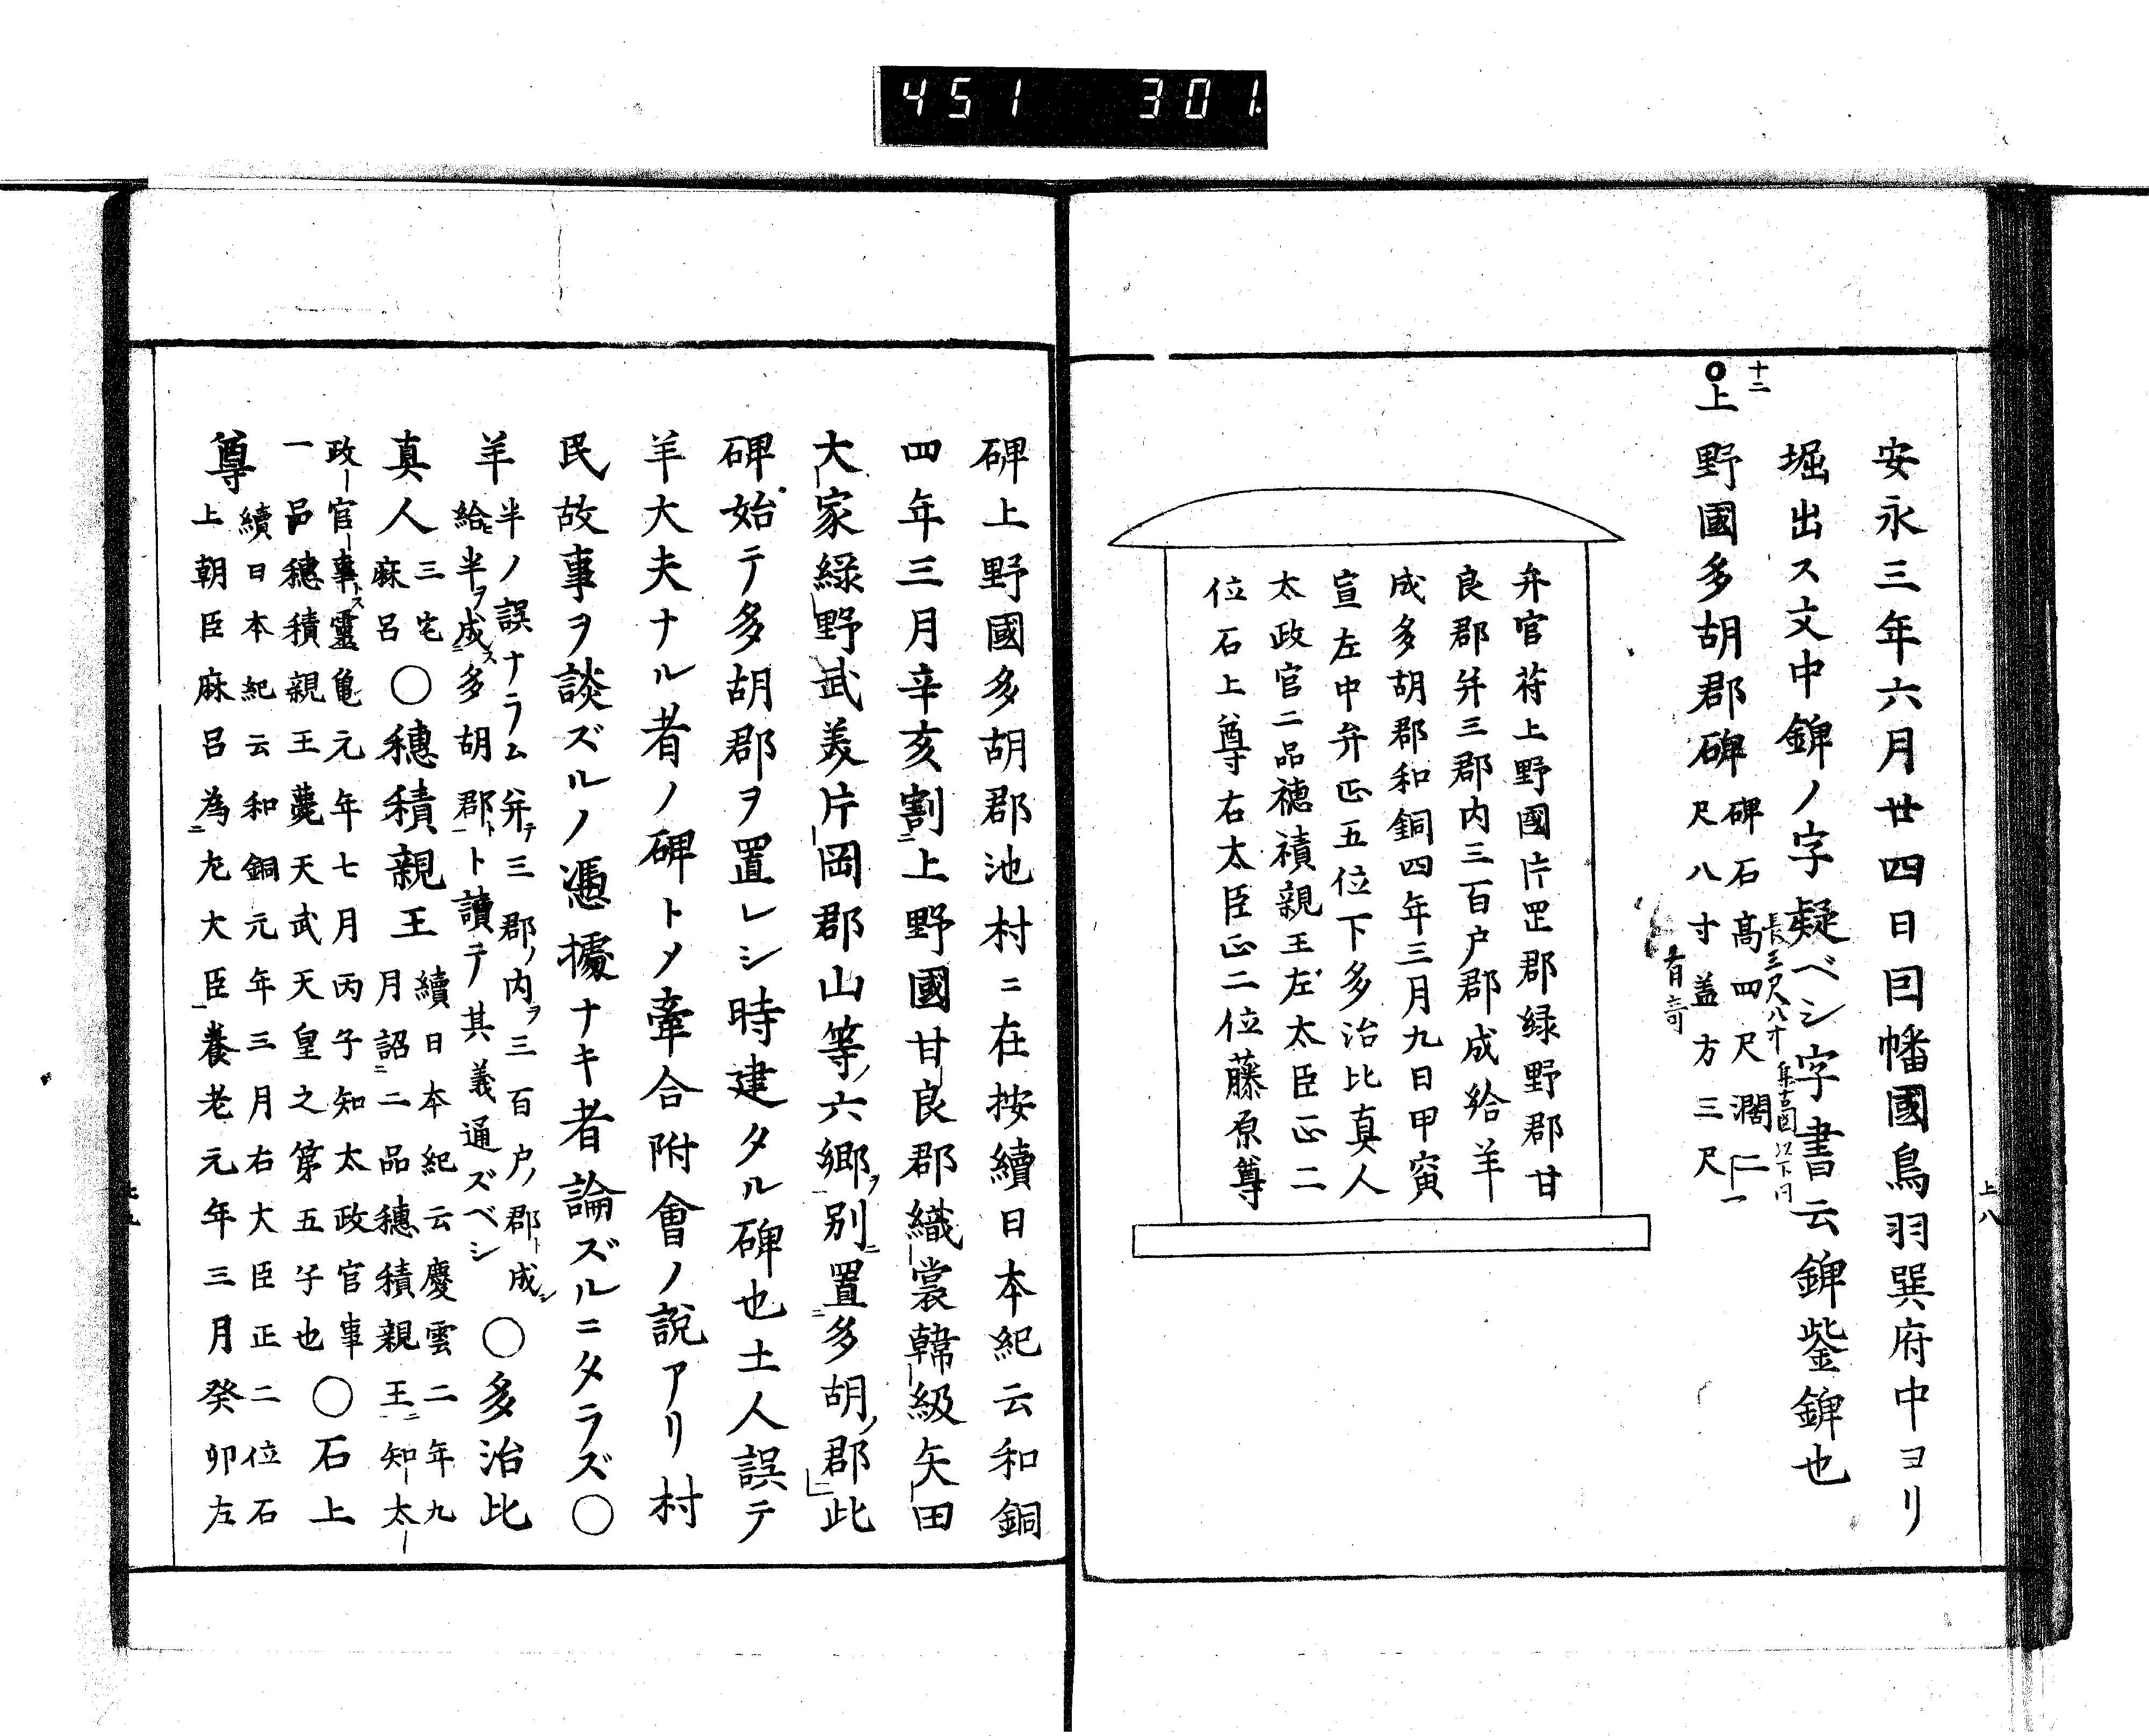 451 301
上八
安永三年六月廿四日因幡國鳥羽巽府中ヨリ
堀出ス文中錍ノ字疑ベシ字書云錍鈭錍也
十二
上野國多胡郡碑
碑石高四尺濶二
尺八寸盖方三尺
長三尺八寸
集古図以下同
弁官苻上野國片罡郡緑野郡甘
良郡幷三郡内三百户郡成給羊
成多胡郡和銅四年三月九日甲寅
宣左中弁正五位下多治比真人
太政官二品穂積親王左太臣正二
位石上尊右太臣正二位藤原尊
碑上野國多胡郡池村ニ在按續日本紀云和銅
四年三月辛亥割上野國甘良郡織裳韓級矢田
大家緑野武美片岡郡山等六郷別置多胡郡此
碑始テ多胡郡ヲ置レシ時建タル碑也土人誤テ
羊大夫ナル者ノ碑トメ牽合附會ノ說アリ村
民故事ヲ談ズルノ憑據ナキ者論ズルニタラズ〇
羊
半ノ誤ナラム幷テ三郡ノ内ヲ三百户ノ郡ト成シ
給半ヲ成ス多胡郡トト讀テ其義通ズベシ
〇多治比
真人
三宅
麻呂
〇穗積親王
續日本紀云慶雲二年九
月詔二品穗積親王知太
政官事トス靈亀元年七月丙子知太政官事
一品穗積親王薨天武天皇之第五子也
〇石上
尊
續日本紀云和銅元年三月右大臣正二位石
上朝臣麻呂為左大臣養老元年三月癸卯左